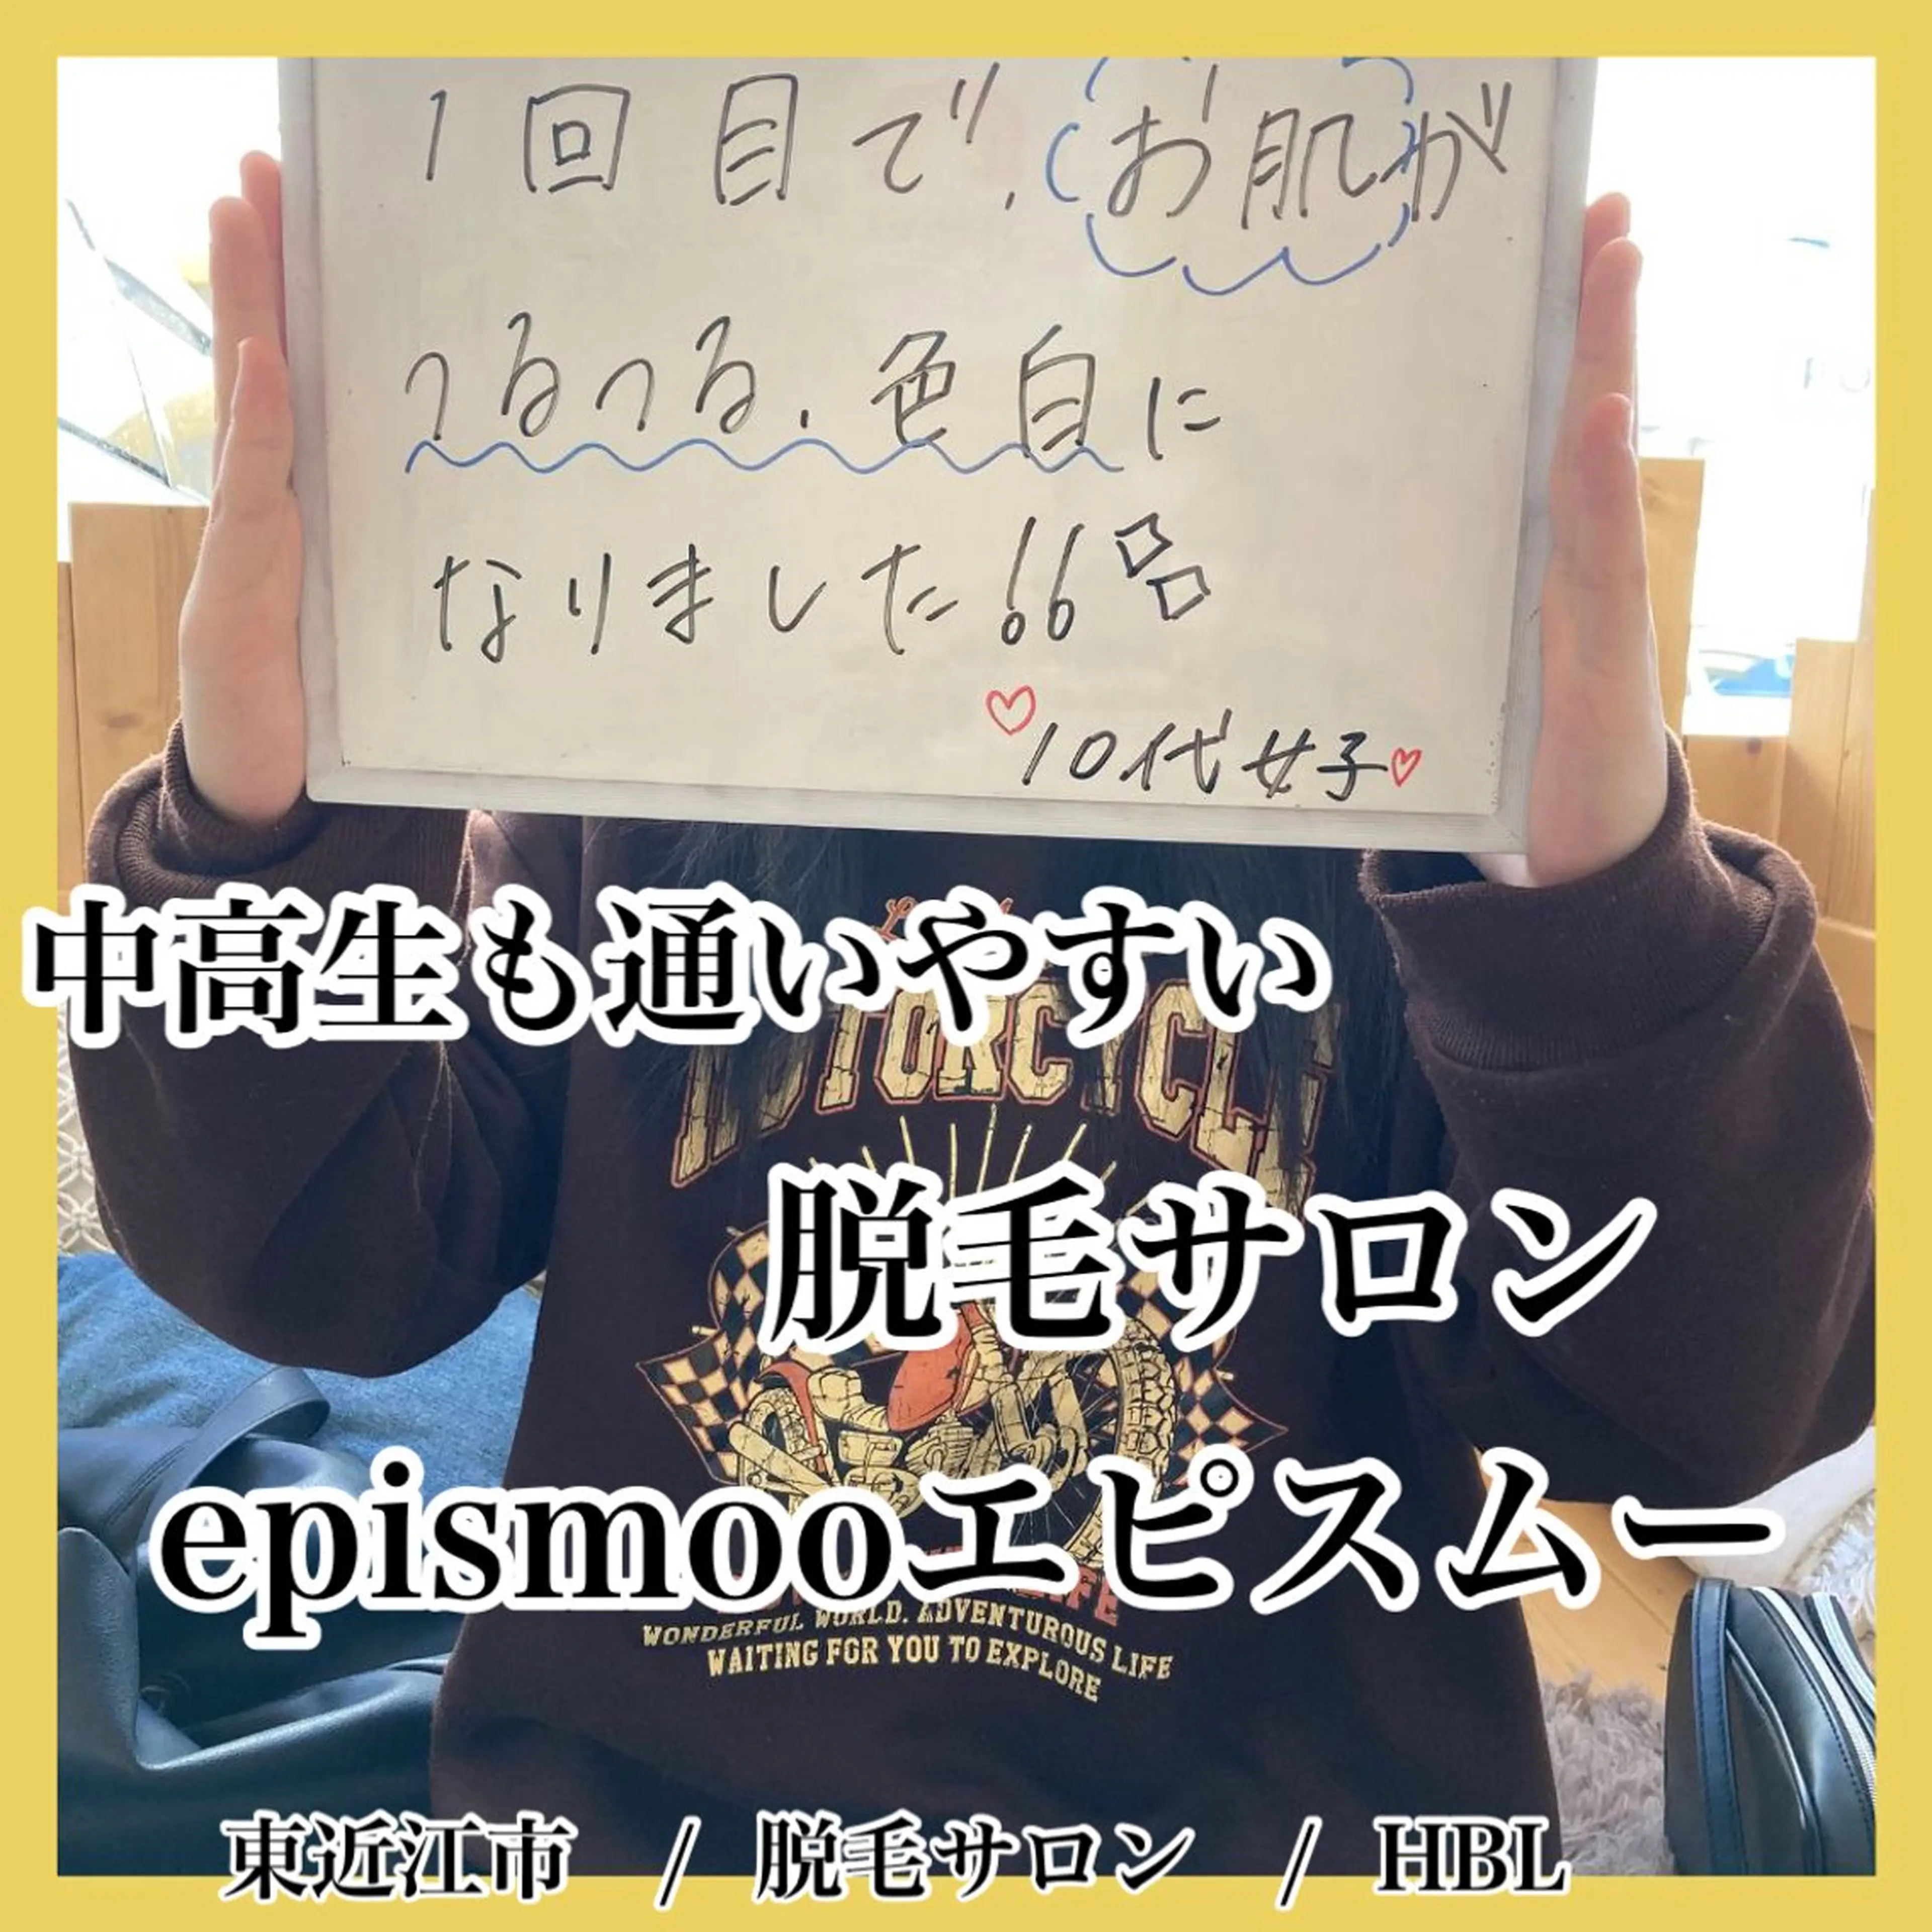 1回目で、お肌が
つるつる、色白に
なりました!!
10代女子
中高生も通いやすい
MOTORCYCLE
脱毛サロン
epismooエピスムー
WONDERFUL WORLD. ADVENTUROUS LIFE
WAITING FOR YOU TO EXPLORE
東近江市 / 脱毛サロン / HBL